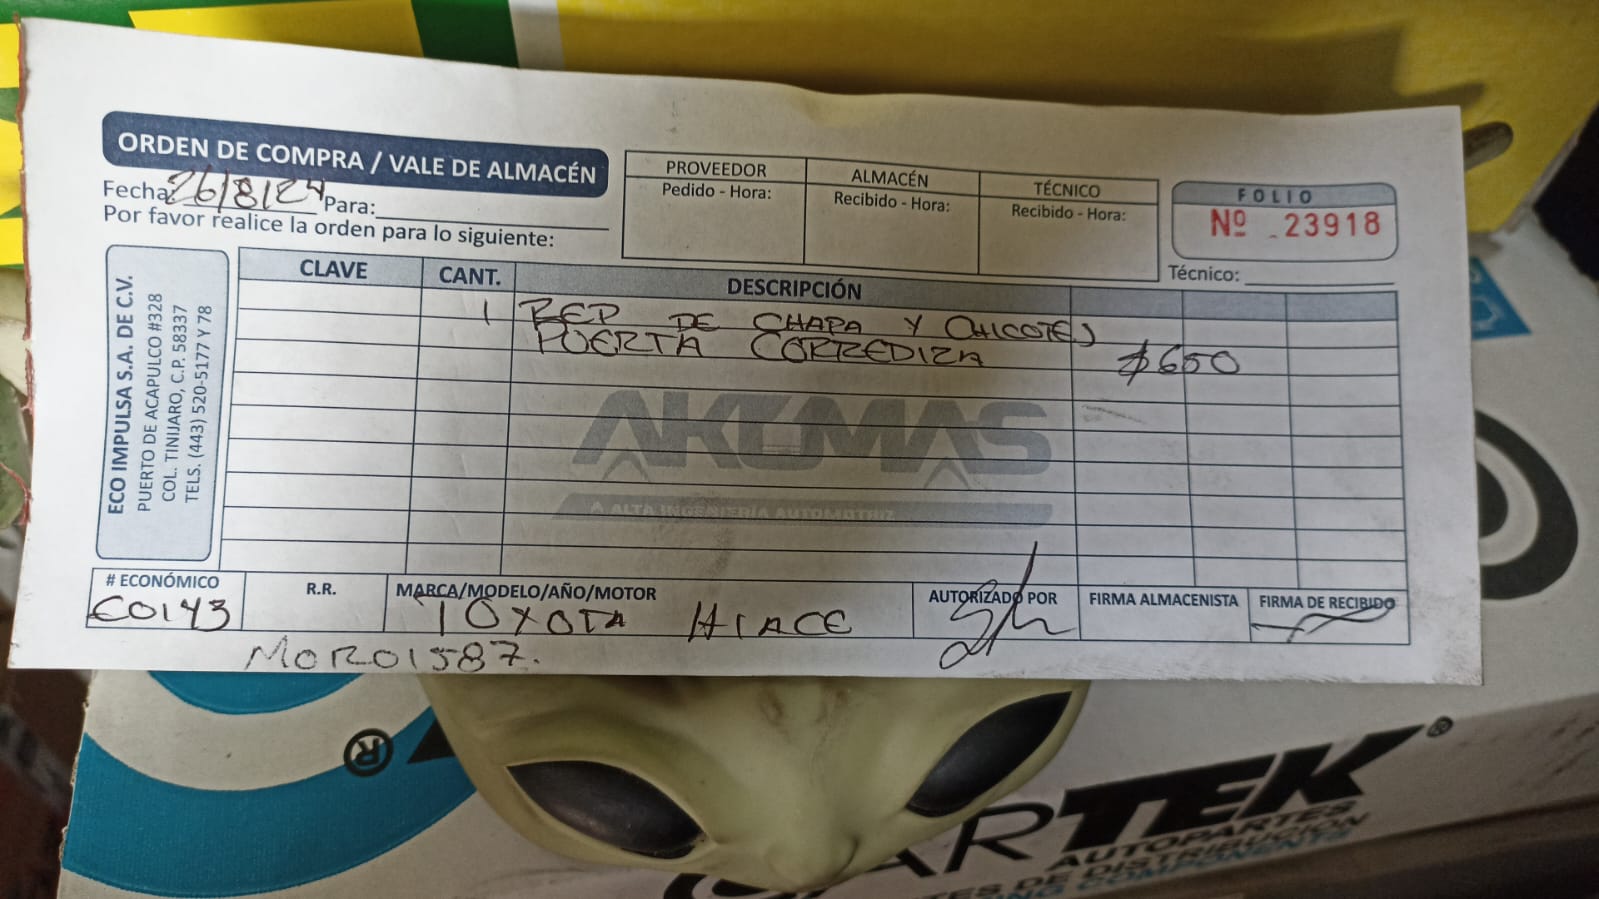 ORDEN DE COMPRA / VALE DE ALMACÉN
Fecha: 26/8/24 Para:
Por favor realice la orden para lo siguiente:
PROVEEDOR ALMACÉN TÉCNICO
Pedido - Hora: Recibido - Hora: Recibido - Hora:
FOLIO
Nº 23918
Técnico:
ECO IMPULSA S.A. DE C.V.
PUERTO DE ACAPULCO #328
COL. TINIJARO, C.P. 58337
TELS. (443) 520-5177 Y 78
CLAVE CANT. DESCRIPCIÓN
1 REP DE CHAPA Y CHICOTES
PUERTA CORREDIZA $650
AKUMAS
A ALTA INGENIERÍA AUTOMOTRIZ
# ECONÓMICO R.R. MARCA/MODELO/AÑO/MOTOR AUTORIZADO POR FIRMA ALMACENISTA FIRMA DE RECIBIDO
E0143 TOYOTA HIACE
MOR01587.
®
ARTEK®
AUTOPARTES
ES DE DISTRIBUCIÓN
NG COMPONENTS